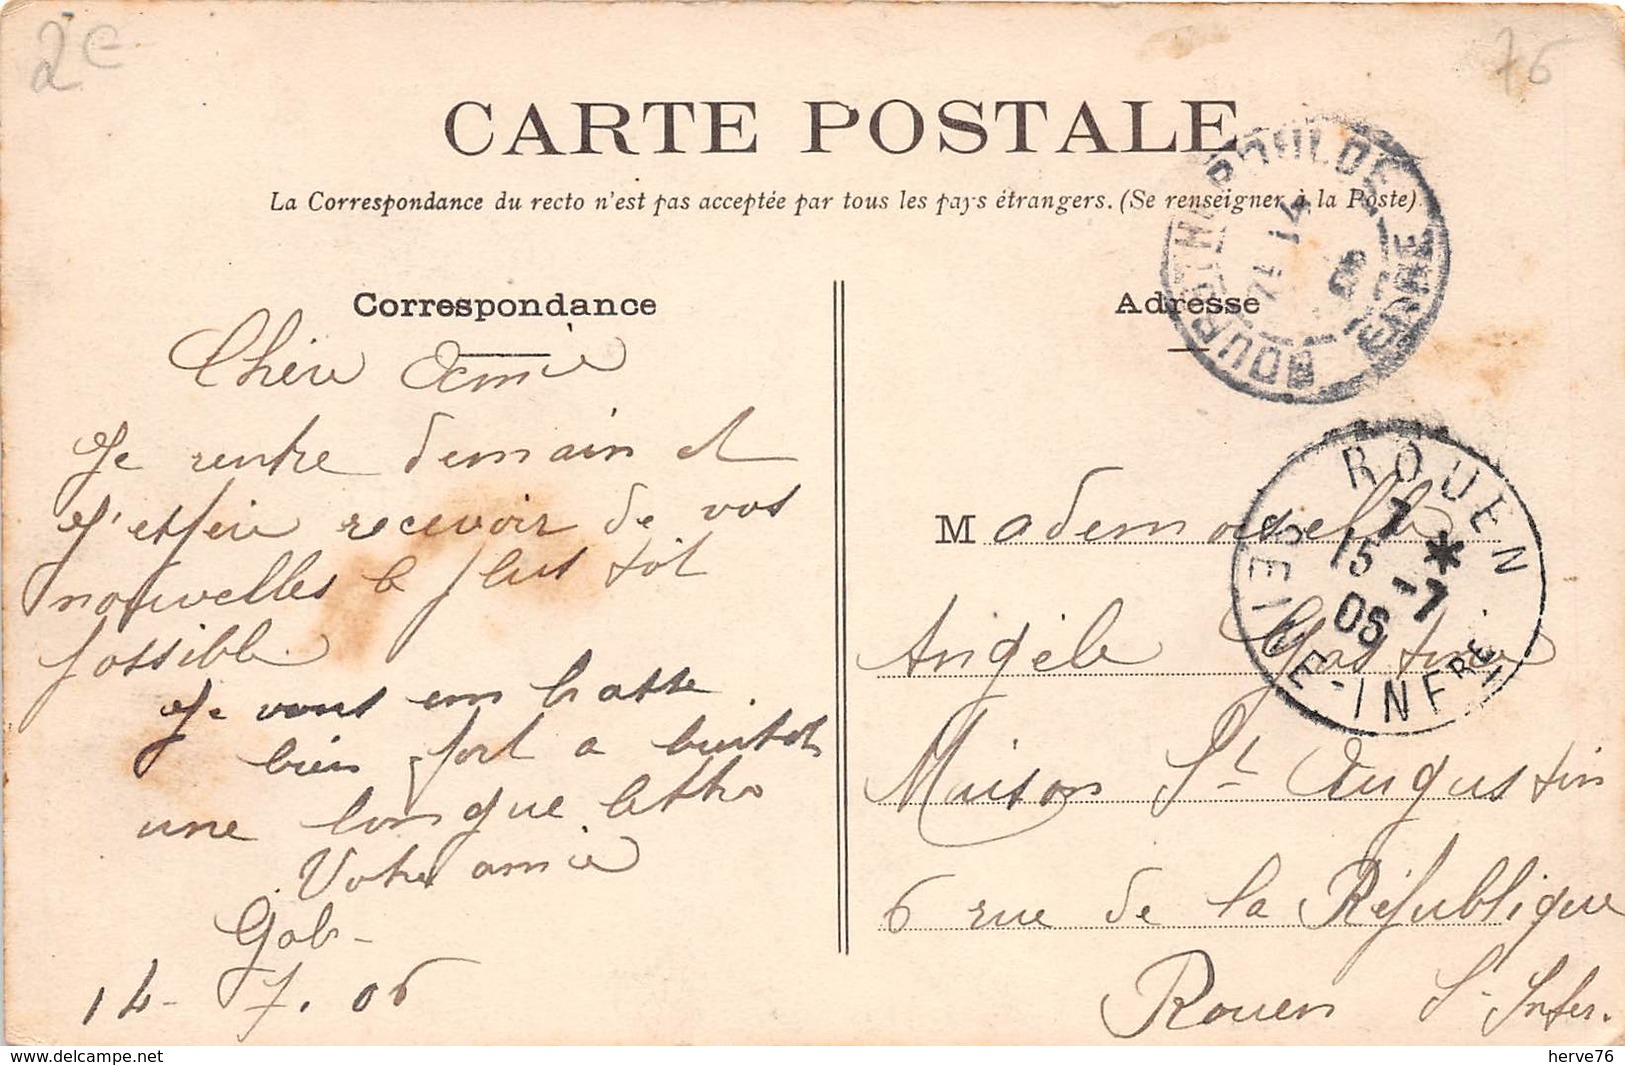 2e
76
CARTE POSTALE
La Correspondance du recto n'est pas acceptée par tous les pays étrangers. (Se renseigner à la Poste)
Correspondance
Chère Amie
Je rentre demain et
j'espère recevoir de vos
nouvelles le plus tôt
possible.
Je vous embrasse
bien fort a bientot
une longue lettre
Votre amie
Gab-
14-7.06
Adresse
BOURGTHEROULDE
EURE
14
ROUEN
7 *
15 -7
06
SEINE-INFRE
Mademoiselle
Angèle
Maison St Augustin
6 rue de la République
Rouen S-Infer.
delcampe.net
herve76